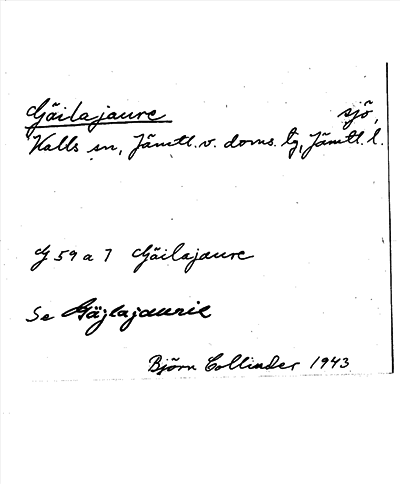 Gäilajaure sjö,
Kalls sn, Jämtl. v. doms. tg, Jämtl. l.
G 59 a 7 Gäilajaure
Se Gäjlajaurie
Björn Collinder 1943